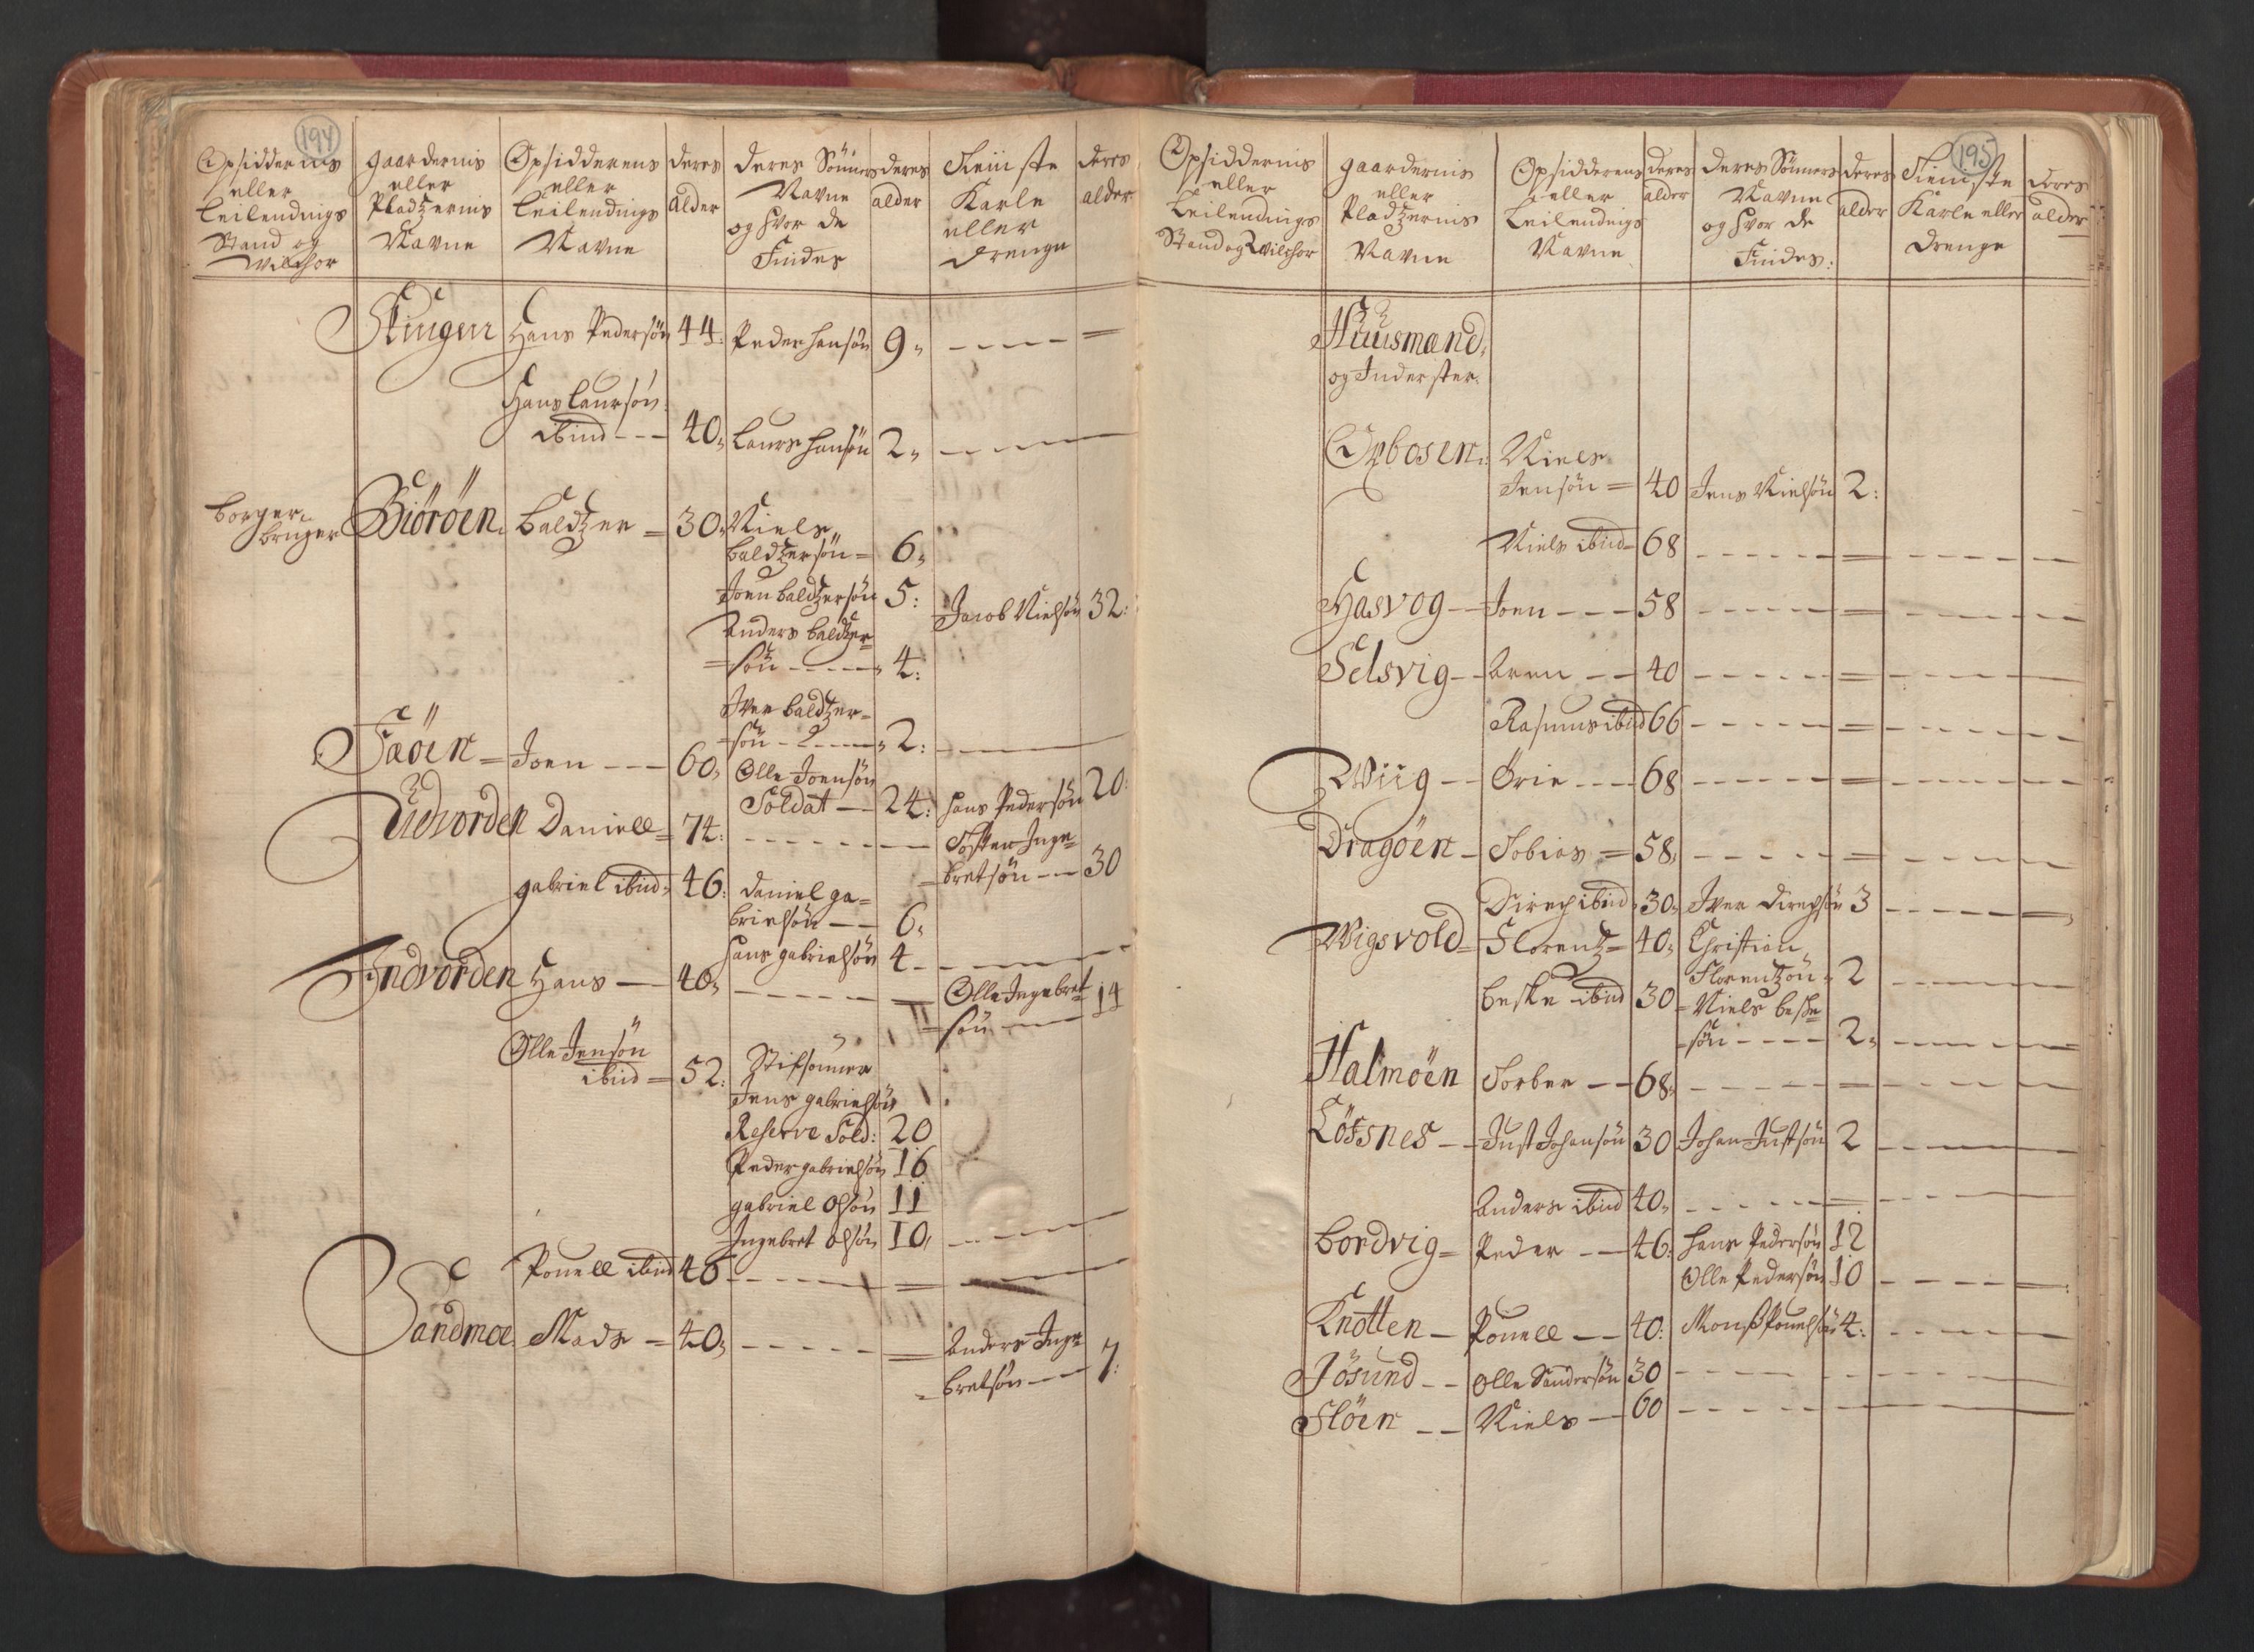 194
Opsiddernis
eller
Leilendnigs
Stand og
Wilchor
gaardernis
eller
Pladzernis
Navne
Opsidderens
eller
Leilendnigs
Navne
deres
alder
deres Sönners
Navne
og hvor de
Findes
deres
alder
Tieniste
Karle
eller
drenge
deres
alder
Stingen Hans Pedersön 44: Peder Hansön 9
Hans Laursön
ibid 40 Laurs Hansön 2
borger
bruger Biöröen Baldzer 30 Niels
Baldzersön 6
Joen Baldzersön 5: Jacob Nielsön 32:
Anders Baldzer
sön 4:
Iver Baldzer
sön 2:
Faöen Joen 60 Olle Joensön
Soldat 24: Hans Pedersön 20:
Udvorden Daniell 74:
Inge
bretsön 30
gabriel ibid 46: daniel ga
brielsön 6
Hans gabrielsön 4
Indvorden Hans 40 Olle Ingebret 14
sön
Olle Jensön
ibid 52: Stifsönner
Jens gabrielsön
Reserve Sold: 20
Peder gabrielsön 16
gabriel olsön 11
Ingebret olsön 10
Pouell ibid 46
Sandmoe Mads 40 Anders Inge
bretsön 7:
195
Opsiddernis
eller
Leilendnigs
Stand og Wilchor
gaardernis
eller
Pladzernis
Navne
Opsidderens
eller
Leilendnigs
Navne
deres
alder
deres Sönners
Navne
og hvor de
Findes:
deres
alder
Tieniste
Karle eller
drenge
deres
alder
Huusmænd
og Inderster
Opbosen Niels
Jensön 40 Jens Nielsön 2:
Niels ibid 68
Hasvog Joen 58
Selsvig Aren 40
Rasmus ibid 66
Wiig 68
Dragöen Tobias 58
Dirich ibid 30 Iver Dirichsön 3
Wigsvold Florentz 40 Christian
Florentzön 2
Beske ibid 30 Niels Beske
sön 2
Halmöen Torber 68
Lösnes Just Johansön 30 Johan Justsön 2
Anders ibid 40
Bordvig Peder 46: Hans Pedersön 12
Olle Pedersön 10
Knotten Pouell 40: Monss Pouelsön 4:
Jösund Olle Sandersön 30
Flöen Niels 60